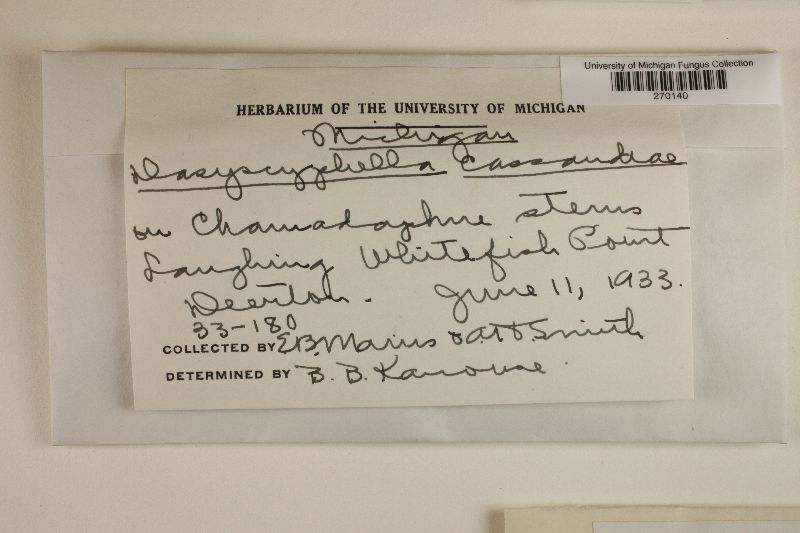 University of Michigan Fungus Collection
270140
HERBARIUM OF THE UNIVERSITY OF MICHIGAN
Michigan
Dasyscyphella Cassandrae
on Chamadaphne stems
Laughing Whitefish Point
Deerton. June 11, 1933.
33-180
COLLECTED BY E.B. Mains & A.H. Smith
DETERMINED BY B. B. Kanouse.